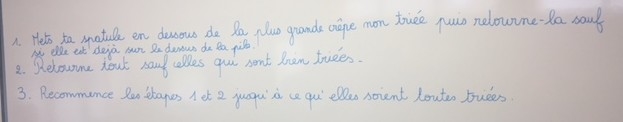 1. Mets ta spatule en dessous de la plus grande crêpe non triée puis retourne-la sauf
si elle est dejà sur le dessus de la pile.
2. Retourne tout sauf celles qui sont bien triées.
3. Recommence les étapes 1 et 2 jusqu'à ce qu'elles soient toutes triées.